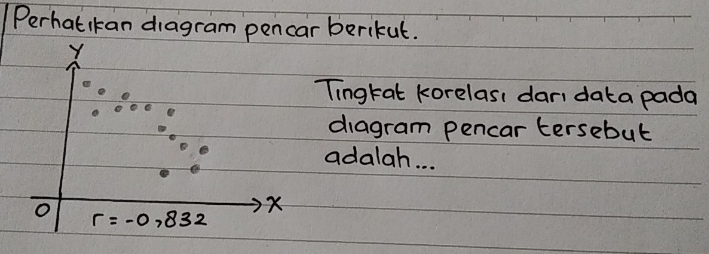 Perhatikan diagram pencar berikut.
Y
Tingkat korelasi dari data pada
diagram pencar tersebut
adalah...
X
O
r = -0,832